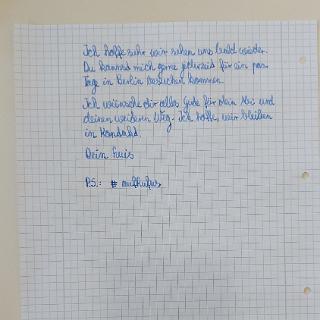 Ich hoffe sehr wir sehen uns bald wieder.
Du kannst mich gerne jederzeit für ein paar
Tage in Berlin besuchen kommen.
Ich wünsche dir alles Gute für dein Abi und
deinen weiteren Weg. Ich hoffe, wir bleiben
in Kontakt.
Dein
P.S.: #